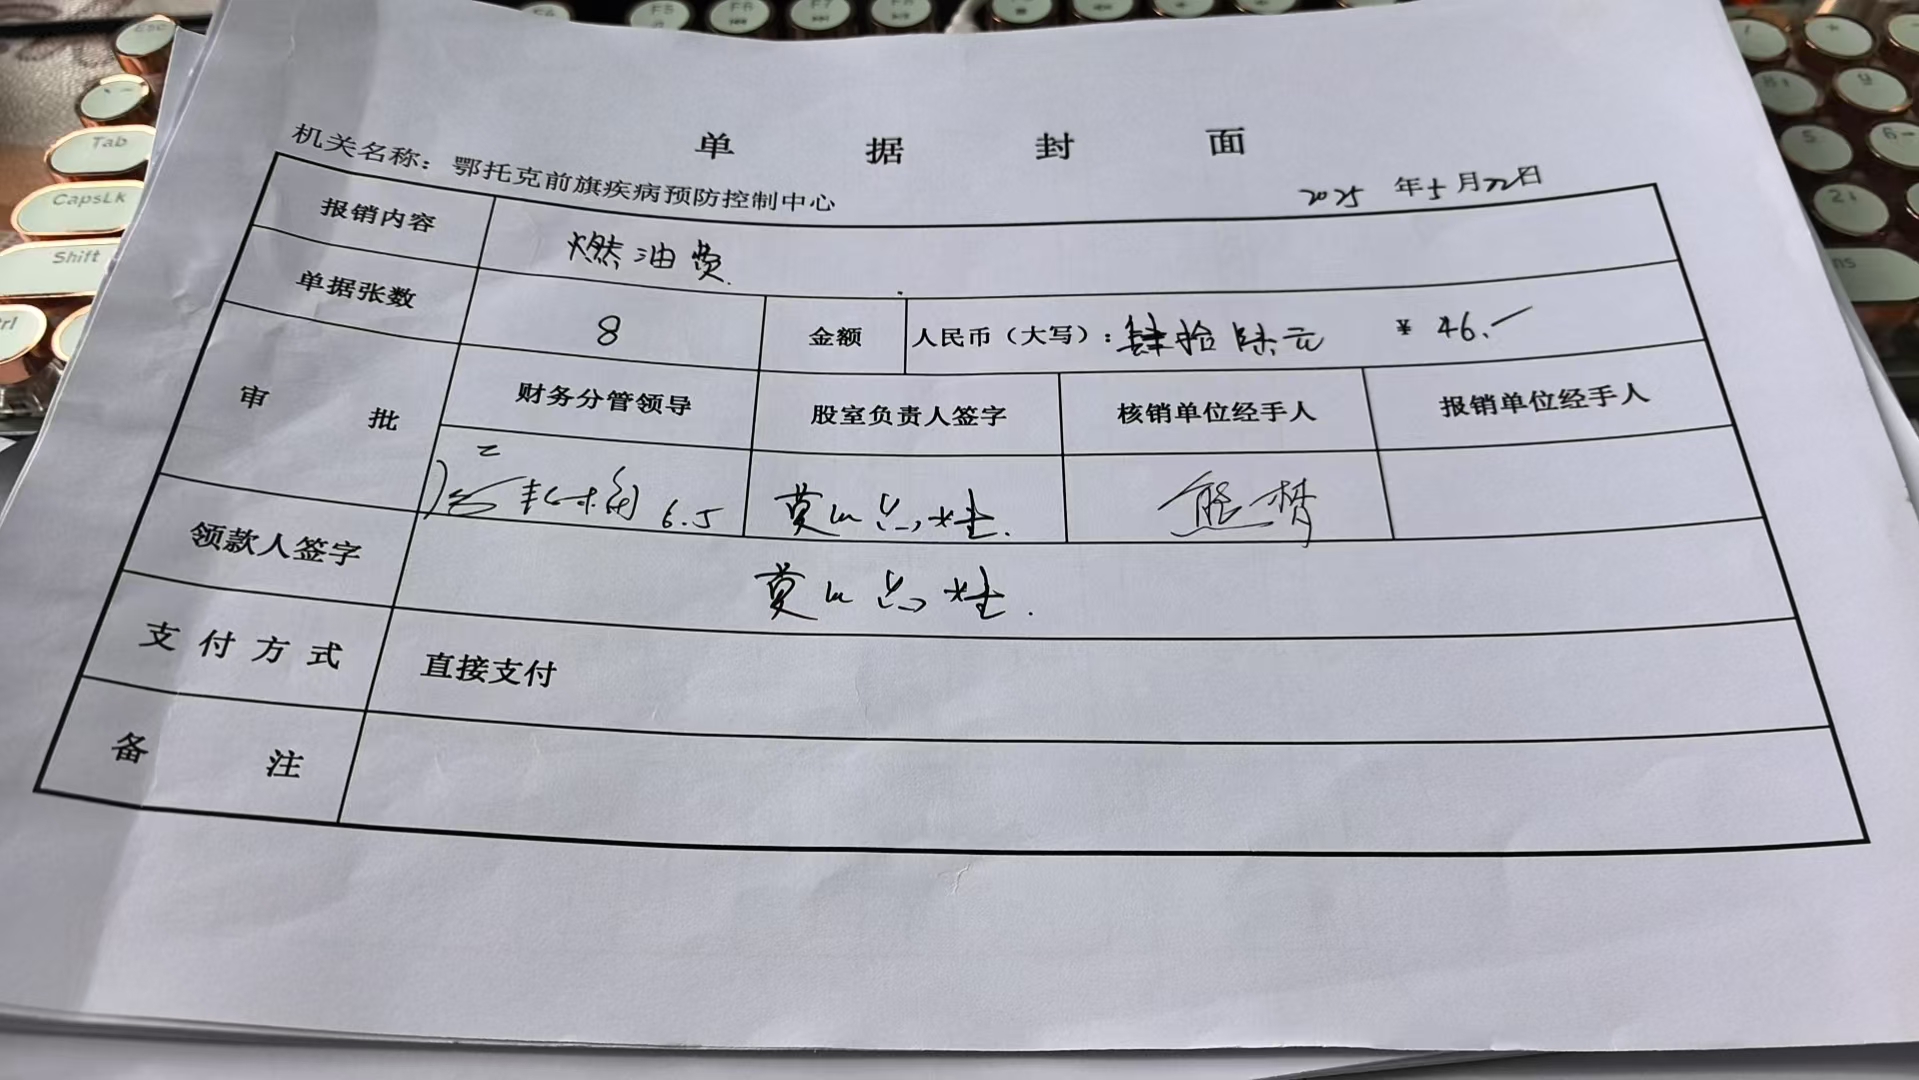 单据封面
机关名称：鄂托克前旗疾病预防控制中心 2025年5月22日
报销内容 燃油费.
单据张数 8 金额 人民币（大写）：肆拾陆元 ¥ 46.-
审批 财务分管领导 股室负责人签字 核销单位经手人 报销单位经手人
6.5 熊梦
领款人签字
支付方式 直接支付
备注
Tab
CapsLk
Shift